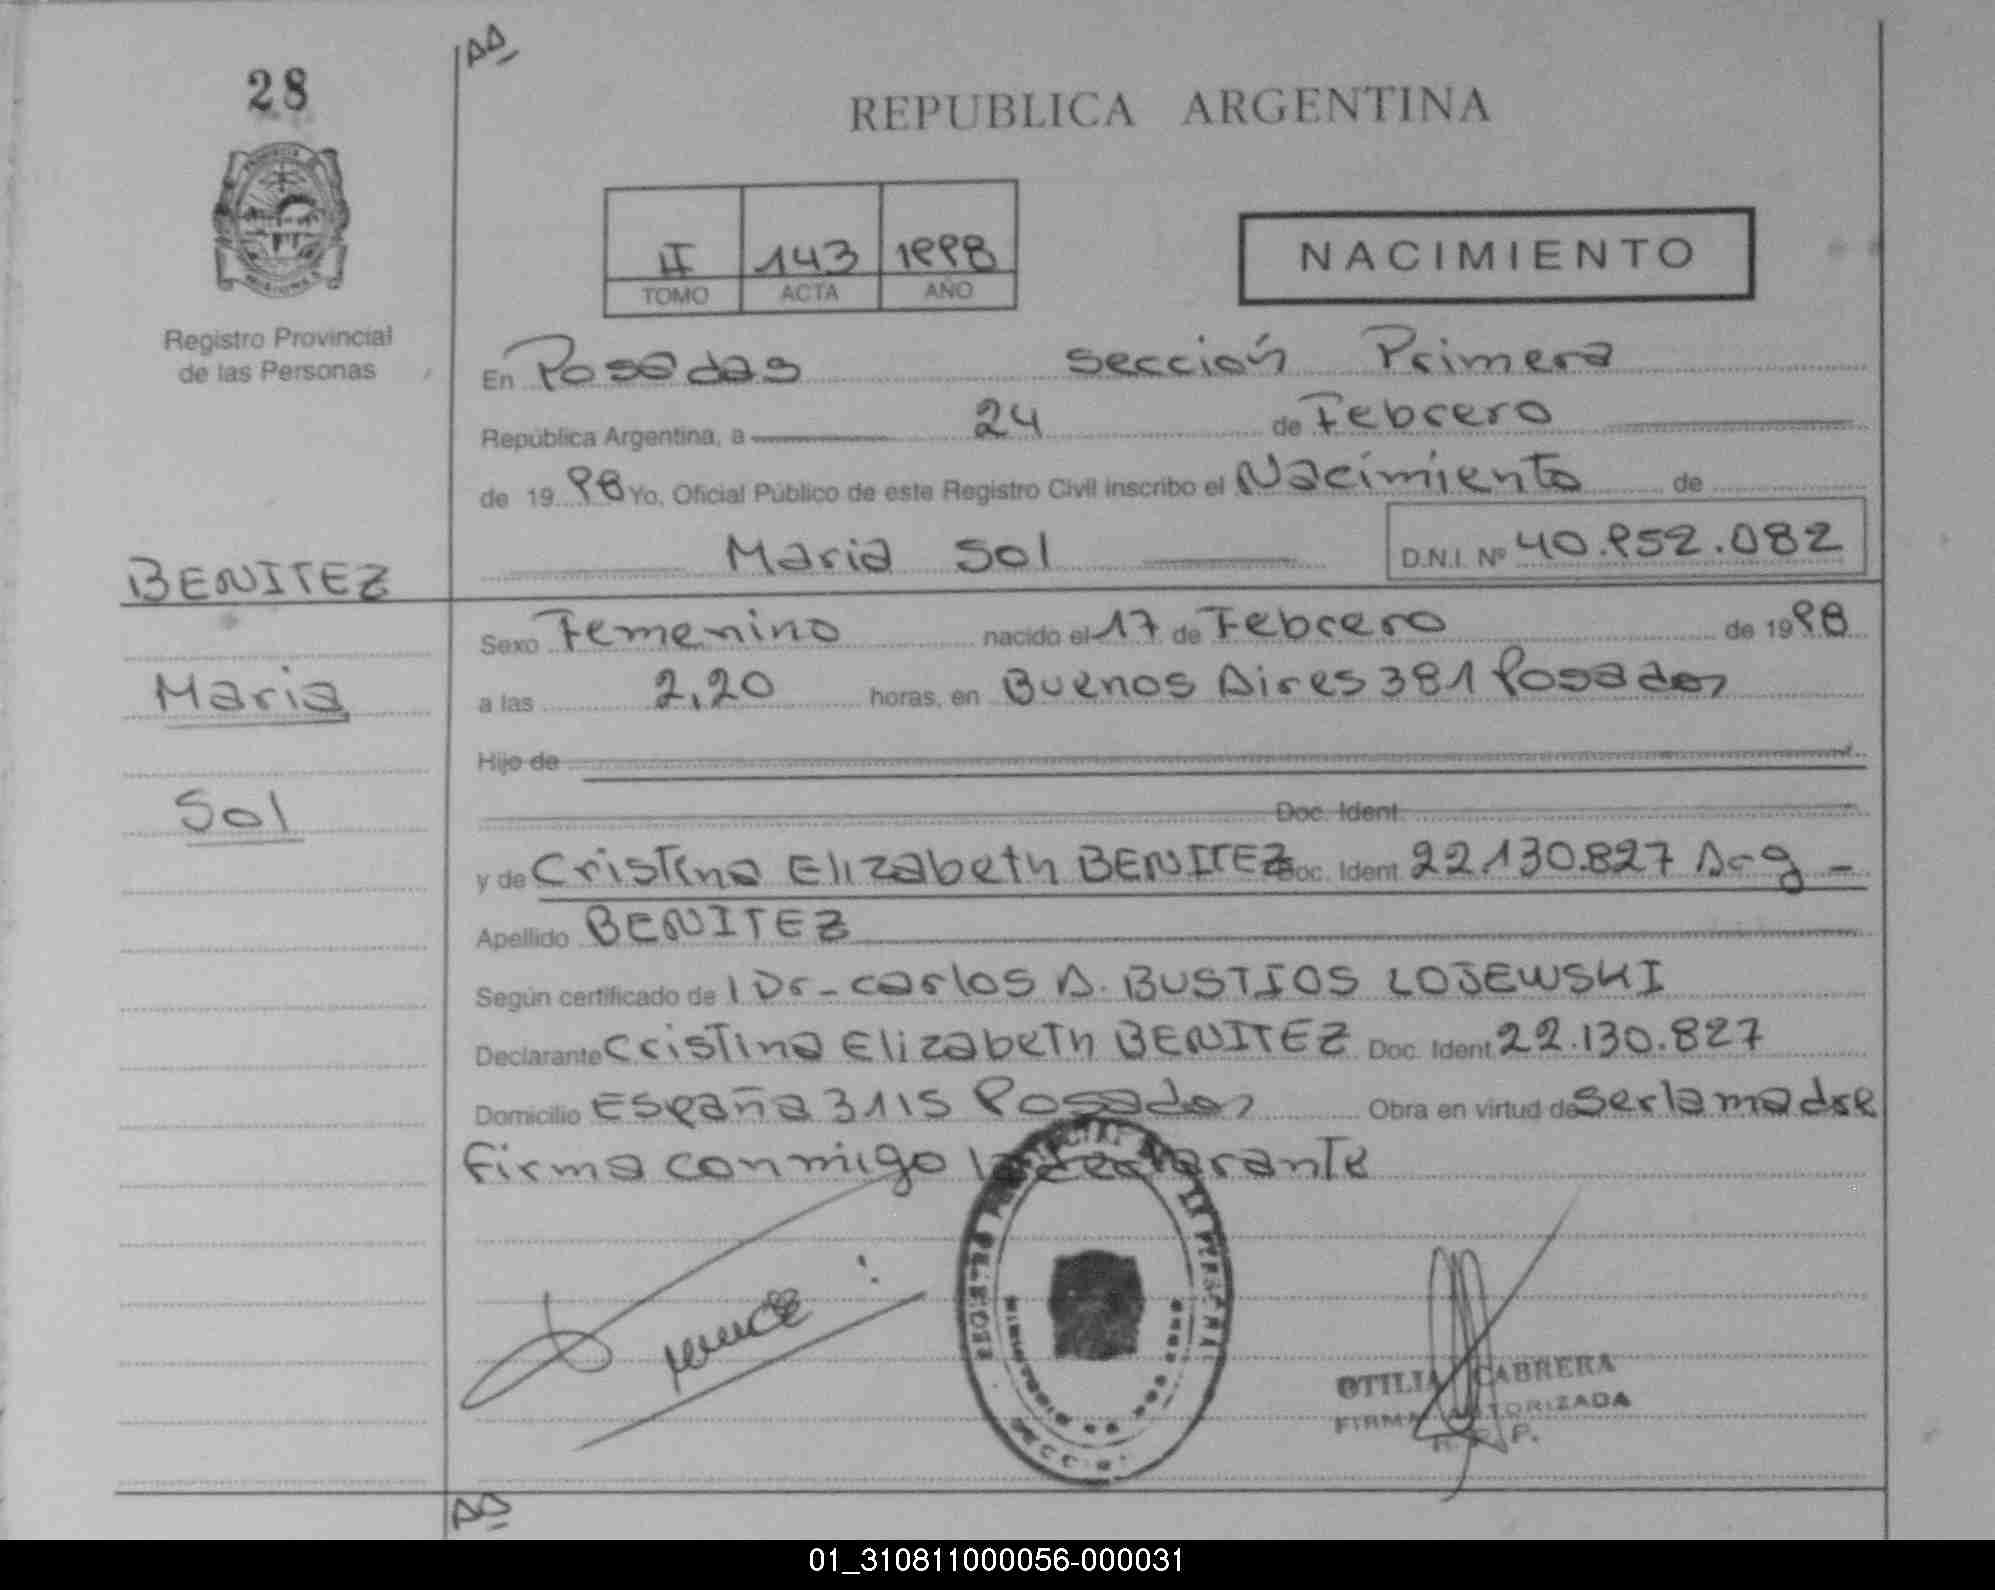 28
AA
REPUBLICA ARGENTINA
II 143 1998
TOMO ACTA AÑO
NACIMIENTO
Registro Provincial
de las Personas
En Posadas sección Primera
República Argentina, a 24 de Febrero
de 1998 Yo, Oficial Público de este Registro Civil inscribo el Nacimiento de
Maria Sol D.N.I. Nº 40.952.082
BENITEZ
Maria
Sol
Sexo Femenino nacido el 17 de Febrero de 1998
a las 2,20 horas, en Buenos Aires 381 Posadas
Hijo de
Doc. Ident.
y de Cristina Elizabeth BENITEZ Doc. Ident. 22.130.827 Arg -
Apellido BENITEZ
Según certificado de l Dr- Carlos A. BUSTIOS LOJEWSKI
Declarante Cristina Elizabeth BENITEZ Doc. Ident. 22.130.827
Domicilio España 3115 Posadas Obra en virtud de ser la madre
firma conmigo la declarante
OTILIA CABRERA
FIRMA AUTORIZADA
R. P. P.
AA
01_310811000056-000031